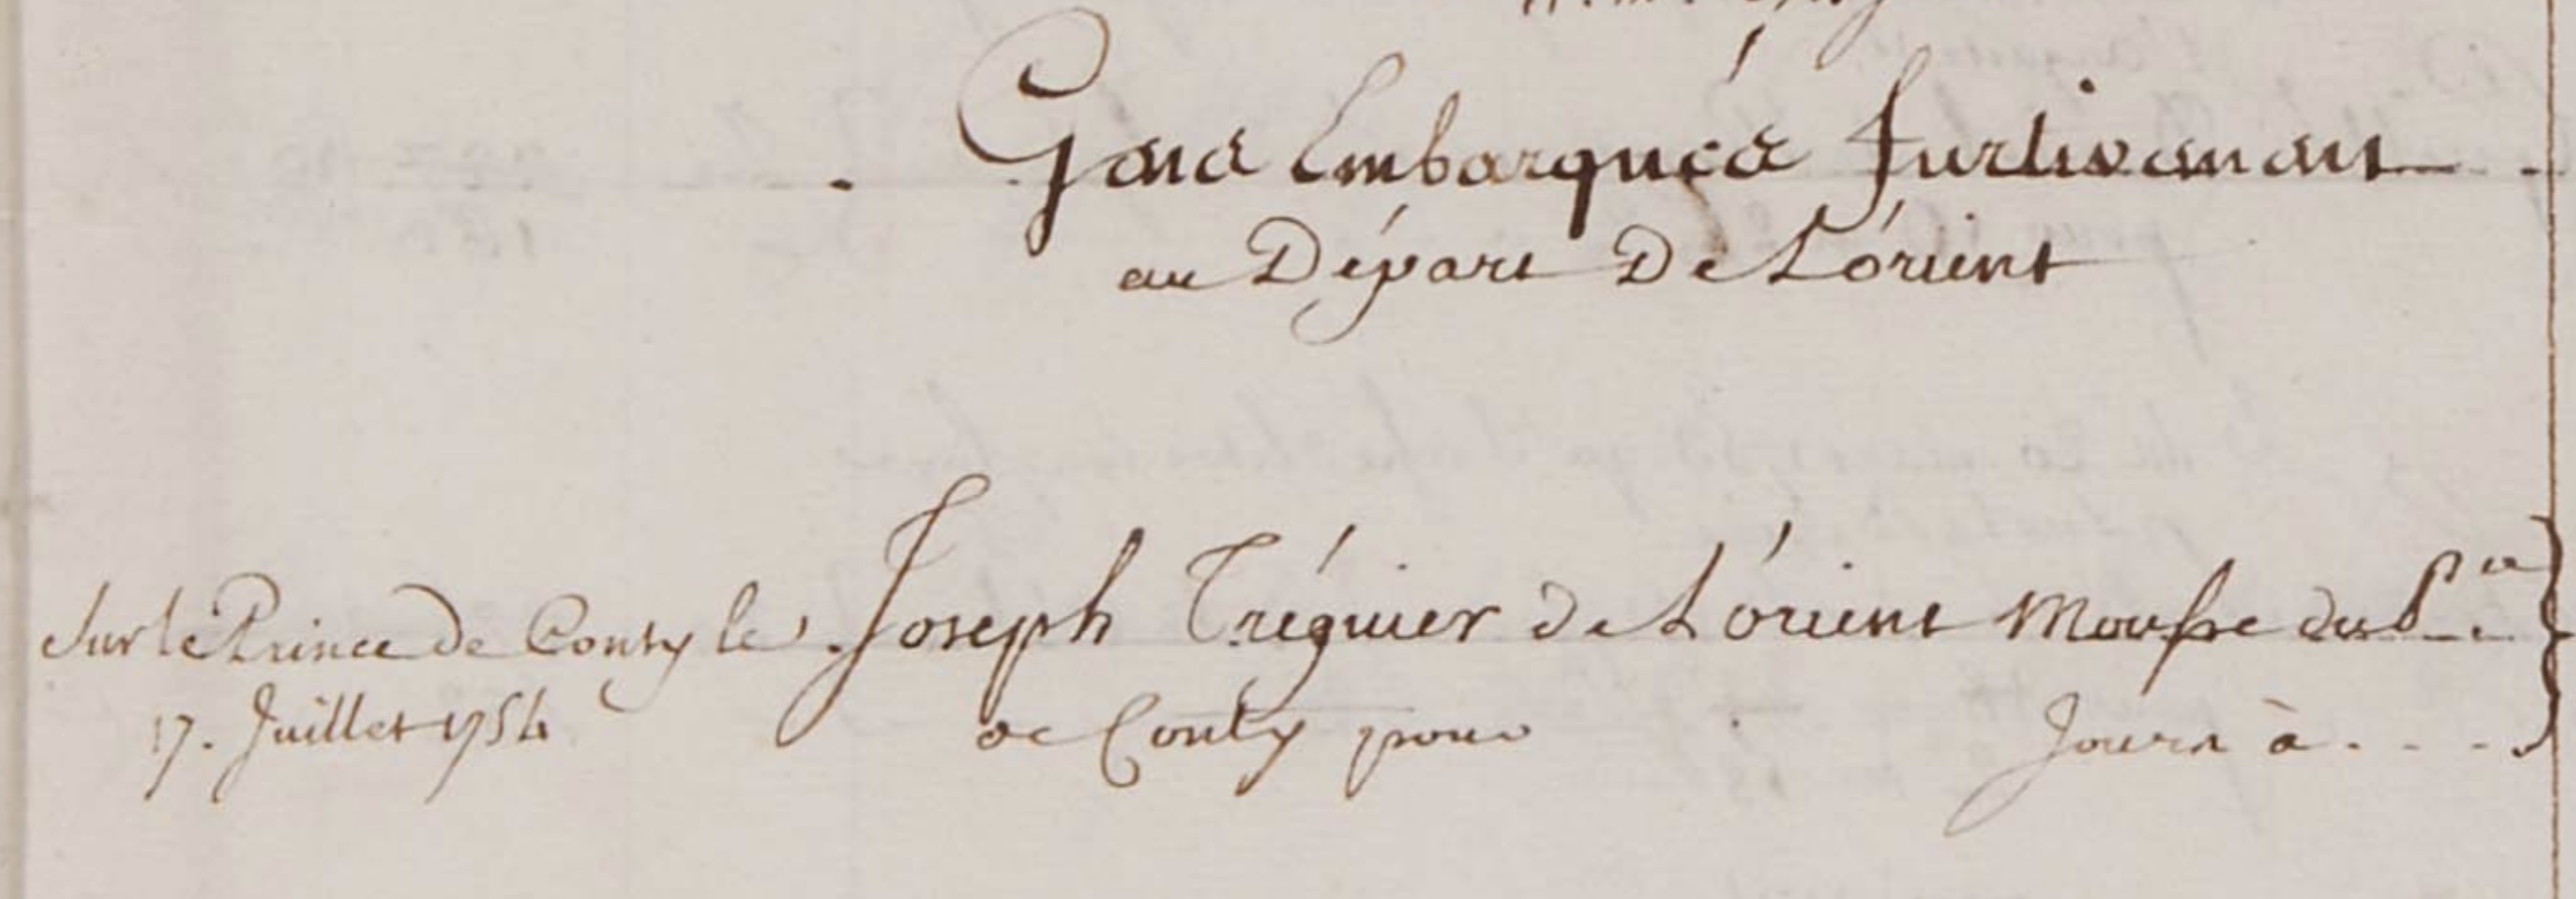 Gens Embarqués furtivement
au Départ De L'órient
Sur le Prince de Conty le
17. Juillet 1754
Joseph Tréguier de L'órient Mousse du P.ce
de Conty pour Jours à . . . .